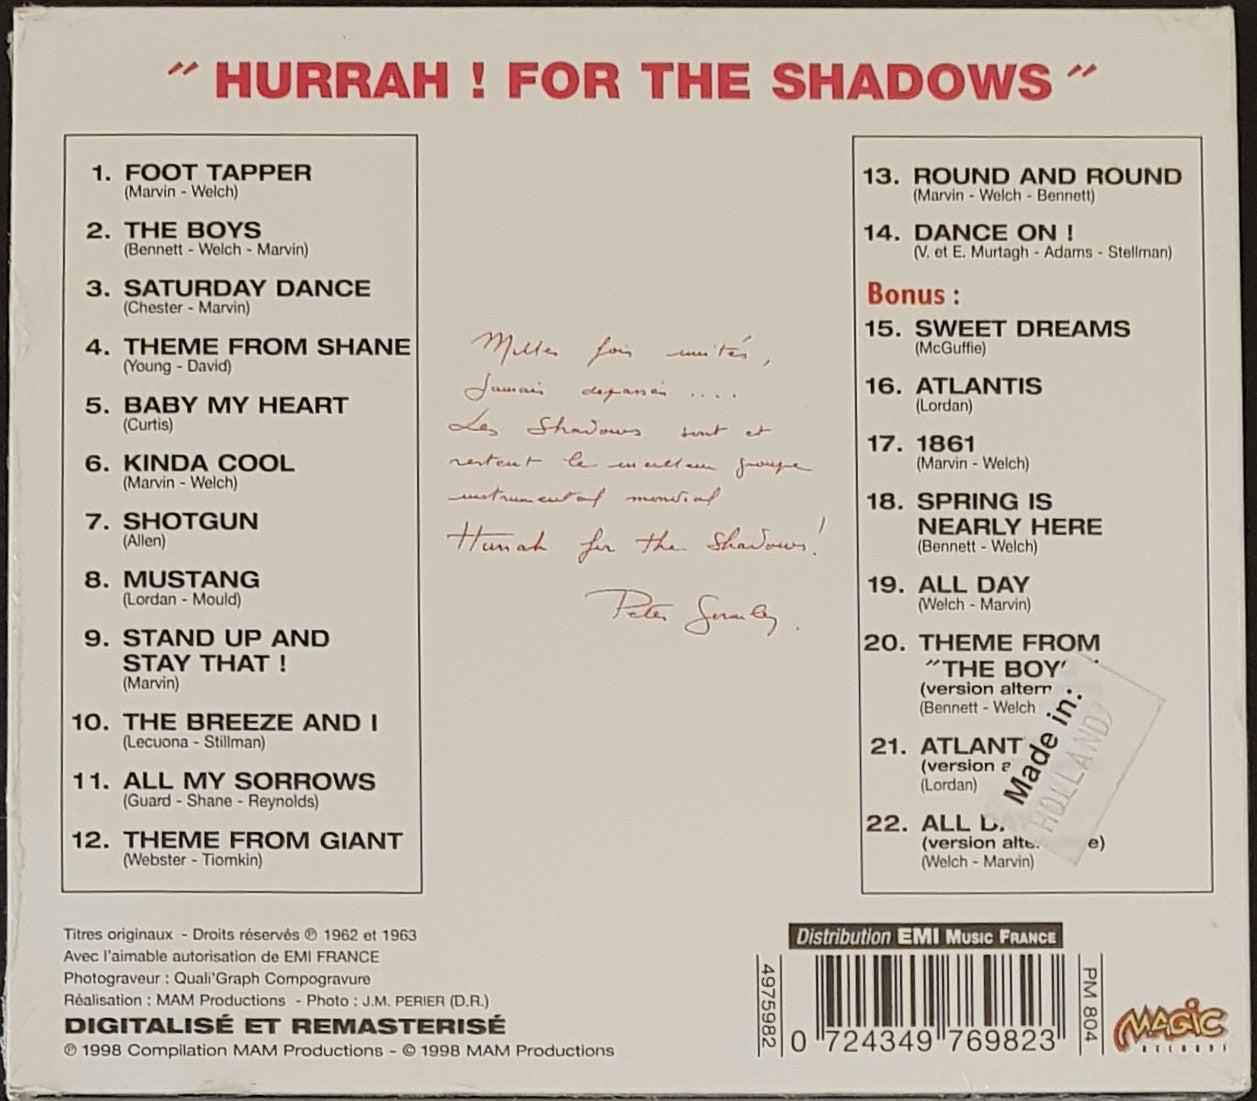 " HURRAH ! FOR THE SHADOWS "
1. FOOT TAPPER
(Marvin - Welch)
2. THE BOYS
(Bennett - Welch - Marvin)
3. SATURDAY DANCE
(Chester - Marvin)
4. THEME FROM SHANE
(Young - David)
5. BABY MY HEART
(Curtis)
6. KINDA COOL
(Marvin - Welch)
7. SHOTGUN
(Allen)
8. MUSTANG
(Lordan - Mould)
9. STAND UP AND
STAY THAT !
(Marvin)
10. THE BREEZE AND I
(Lecuona - Stillman)
11. ALL MY SORROWS
(Guard - Shane - Reynolds)
12. THEME FROM GIANT
(Webster - Tiomkin)
Milles fois imités,
Jamais dépassés ....
Les Shadows sont et
restent le meilleur groupe
instrumental mondial
Hurrah for the Shadows!
Peter Gormley.
13. ROUND AND ROUND
(Marvin - Welch - Bennett)
14. DANCE ON !
(V. et E. Murtagh - Adams - Stellman)
Bonus :
15. SWEET DREAMS
(McGuffie)
16. ATLANTIS
(Lordan)
17. 1861
(Marvin - Welch)
18. SPRING IS
NEARLY HERE
(Bennett - Welch)
19. ALL DAY
(Welch - Marvin)
20. THEME FROM
"THE BOY
(version altern
(Bennett - Welch
21. ATLANT
(version a
(Lordan)
22. ALL D
(version alte e)
(Welch - Marvin)
Made in:
HOLLAND
Titres originaux - Droits réservés ℗ 1962 et 1963
Avec l'aimable autorisation de EMI FRANCE
Photograveur : Quali'Graph Compogravure
Réalisation : MAM Productions - Photo : J.M. PERIER (D.R.)
DIGITALISÉ ET REMASTERISÉ
℗ 1998 Compilation MAM Productions - © 1998 MAM Productions
Distribution EMI MUSIC FRANCE
4975982
0 724349 769823
PM 804
MAGIC
RECORDS